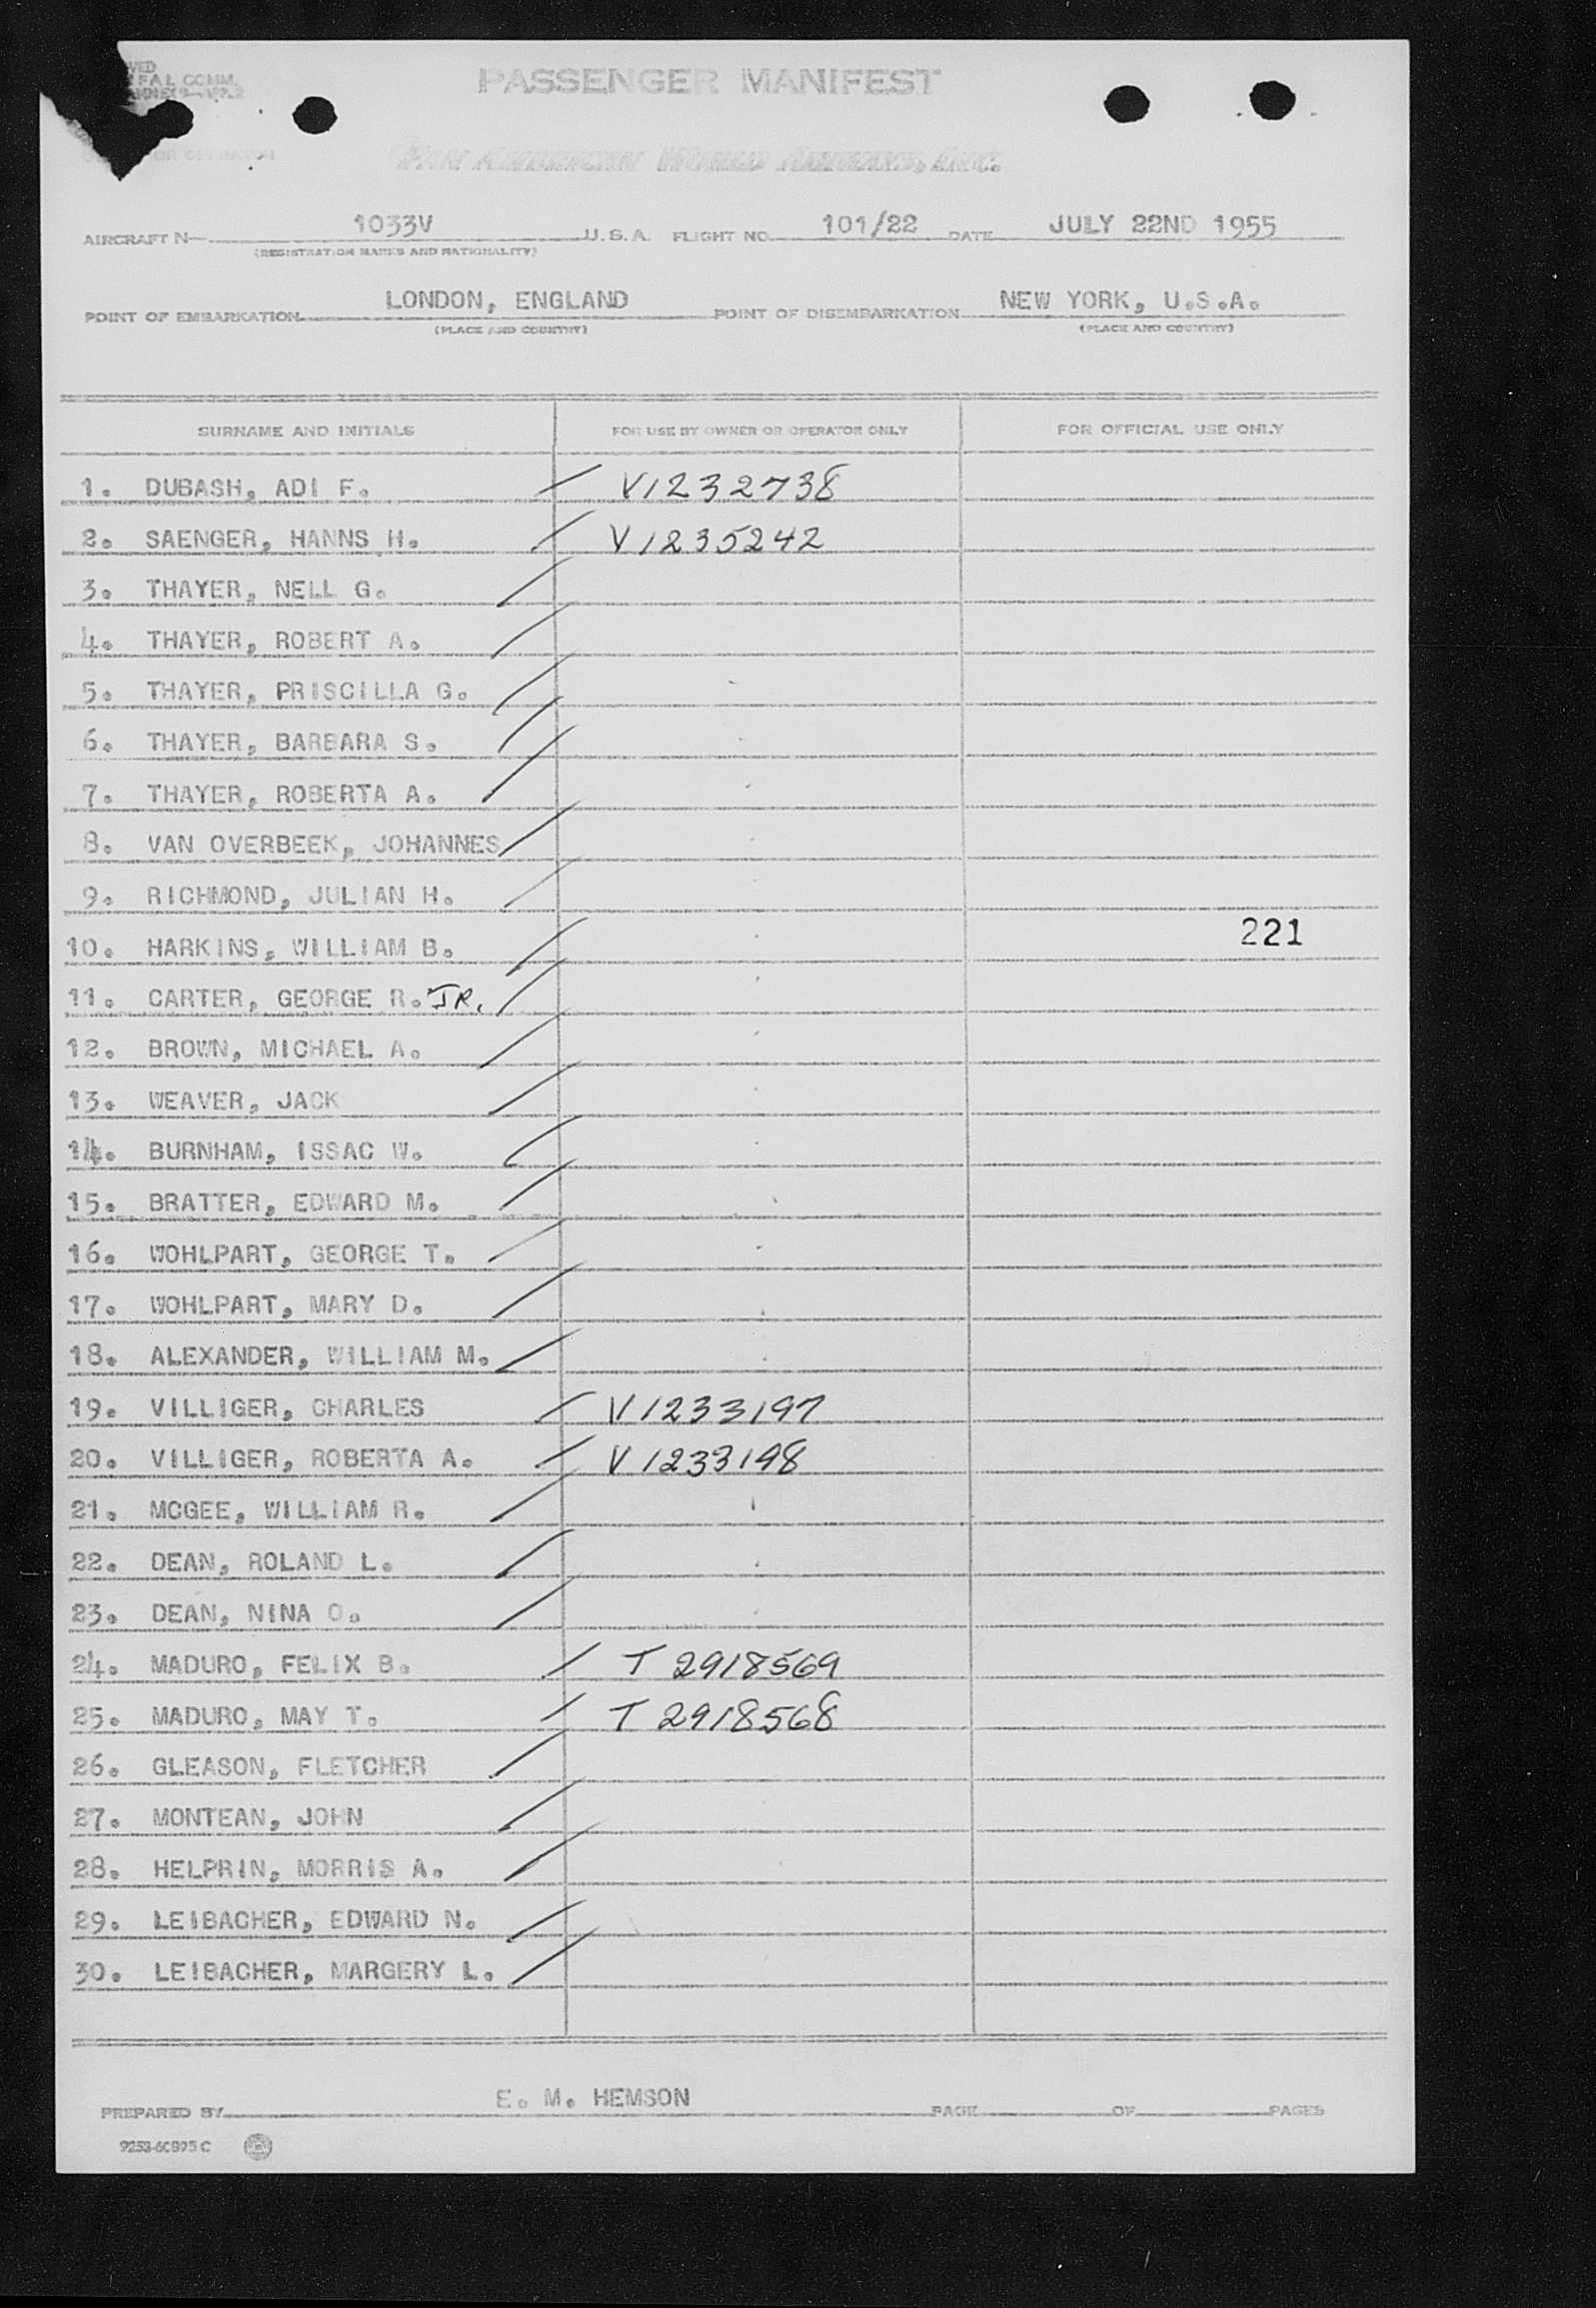 PASSENGER MANIFEST
PAN AMERICAN WORLD AIRWAYS, INC.
AIRCRAFT N 1033V U.S.A. FLIGHT NO. 101/22 DATE JULY 22ND 1955
(REGISTRATION MARKS AND NATIONALITY)
POINT OF EMBARKATION LONDON, ENGLAND POINT OF DISEMBARKATION NEW YORK, U.S.A.
(PLACE AND COUNTRY) (PLACE AND COUNTRY)
SURNAME AND INITIALS FOR USE BY OWNER OR OPERATOR ONLY FOR OFFICIAL USE ONLY
1. DUBASH, ADI F. V1232738
2. SAENGER, HANNS H. V1235242
3. THAYER, NELL G.
4. THAYER, ROBERT A.
5. THAYER, PRISCILLA G.
6. THAYER, BARBARA S.
7. THAYER, ROBERTA A.
8. VAN OVERBEEK, JOHANNES
9. RICHMOND, JULIAN H.
10. HARKINS, WILLIAM B. 221
11. CARTER, GEORGE R. JR.
12. BROWN, MICHAEL A.
13. WEAVER, JACK
14. BURNHAM, ISSAC W.
15. BRATTER, EDWARD M.
16. WOHLPART, GEORGE T.
17. WOHLPART, MARY D.
18. ALEXANDER, WILLIAM M.
19. VILLIGER, CHARLES V1233197
20. VILLIGER, ROBERTA A. V1233198
21. MCGEE, WILLIAM R.
22. DEAN, ROLAND L.
23. DEAN, NINA O.
24. MADURO, FELIX B. T 2918569
25. MADURO, MAY T. T 2918568
26. GLEASON, FLETCHER
27. MONTEAN, JOHN
28. HELPRIN, MORRIS A.
29. LEIBACHER, EDWARD N.
30. LEIBACHER, MARGERY L.
PREPARED BY E. M. HEMSON PAGE OF PAGES